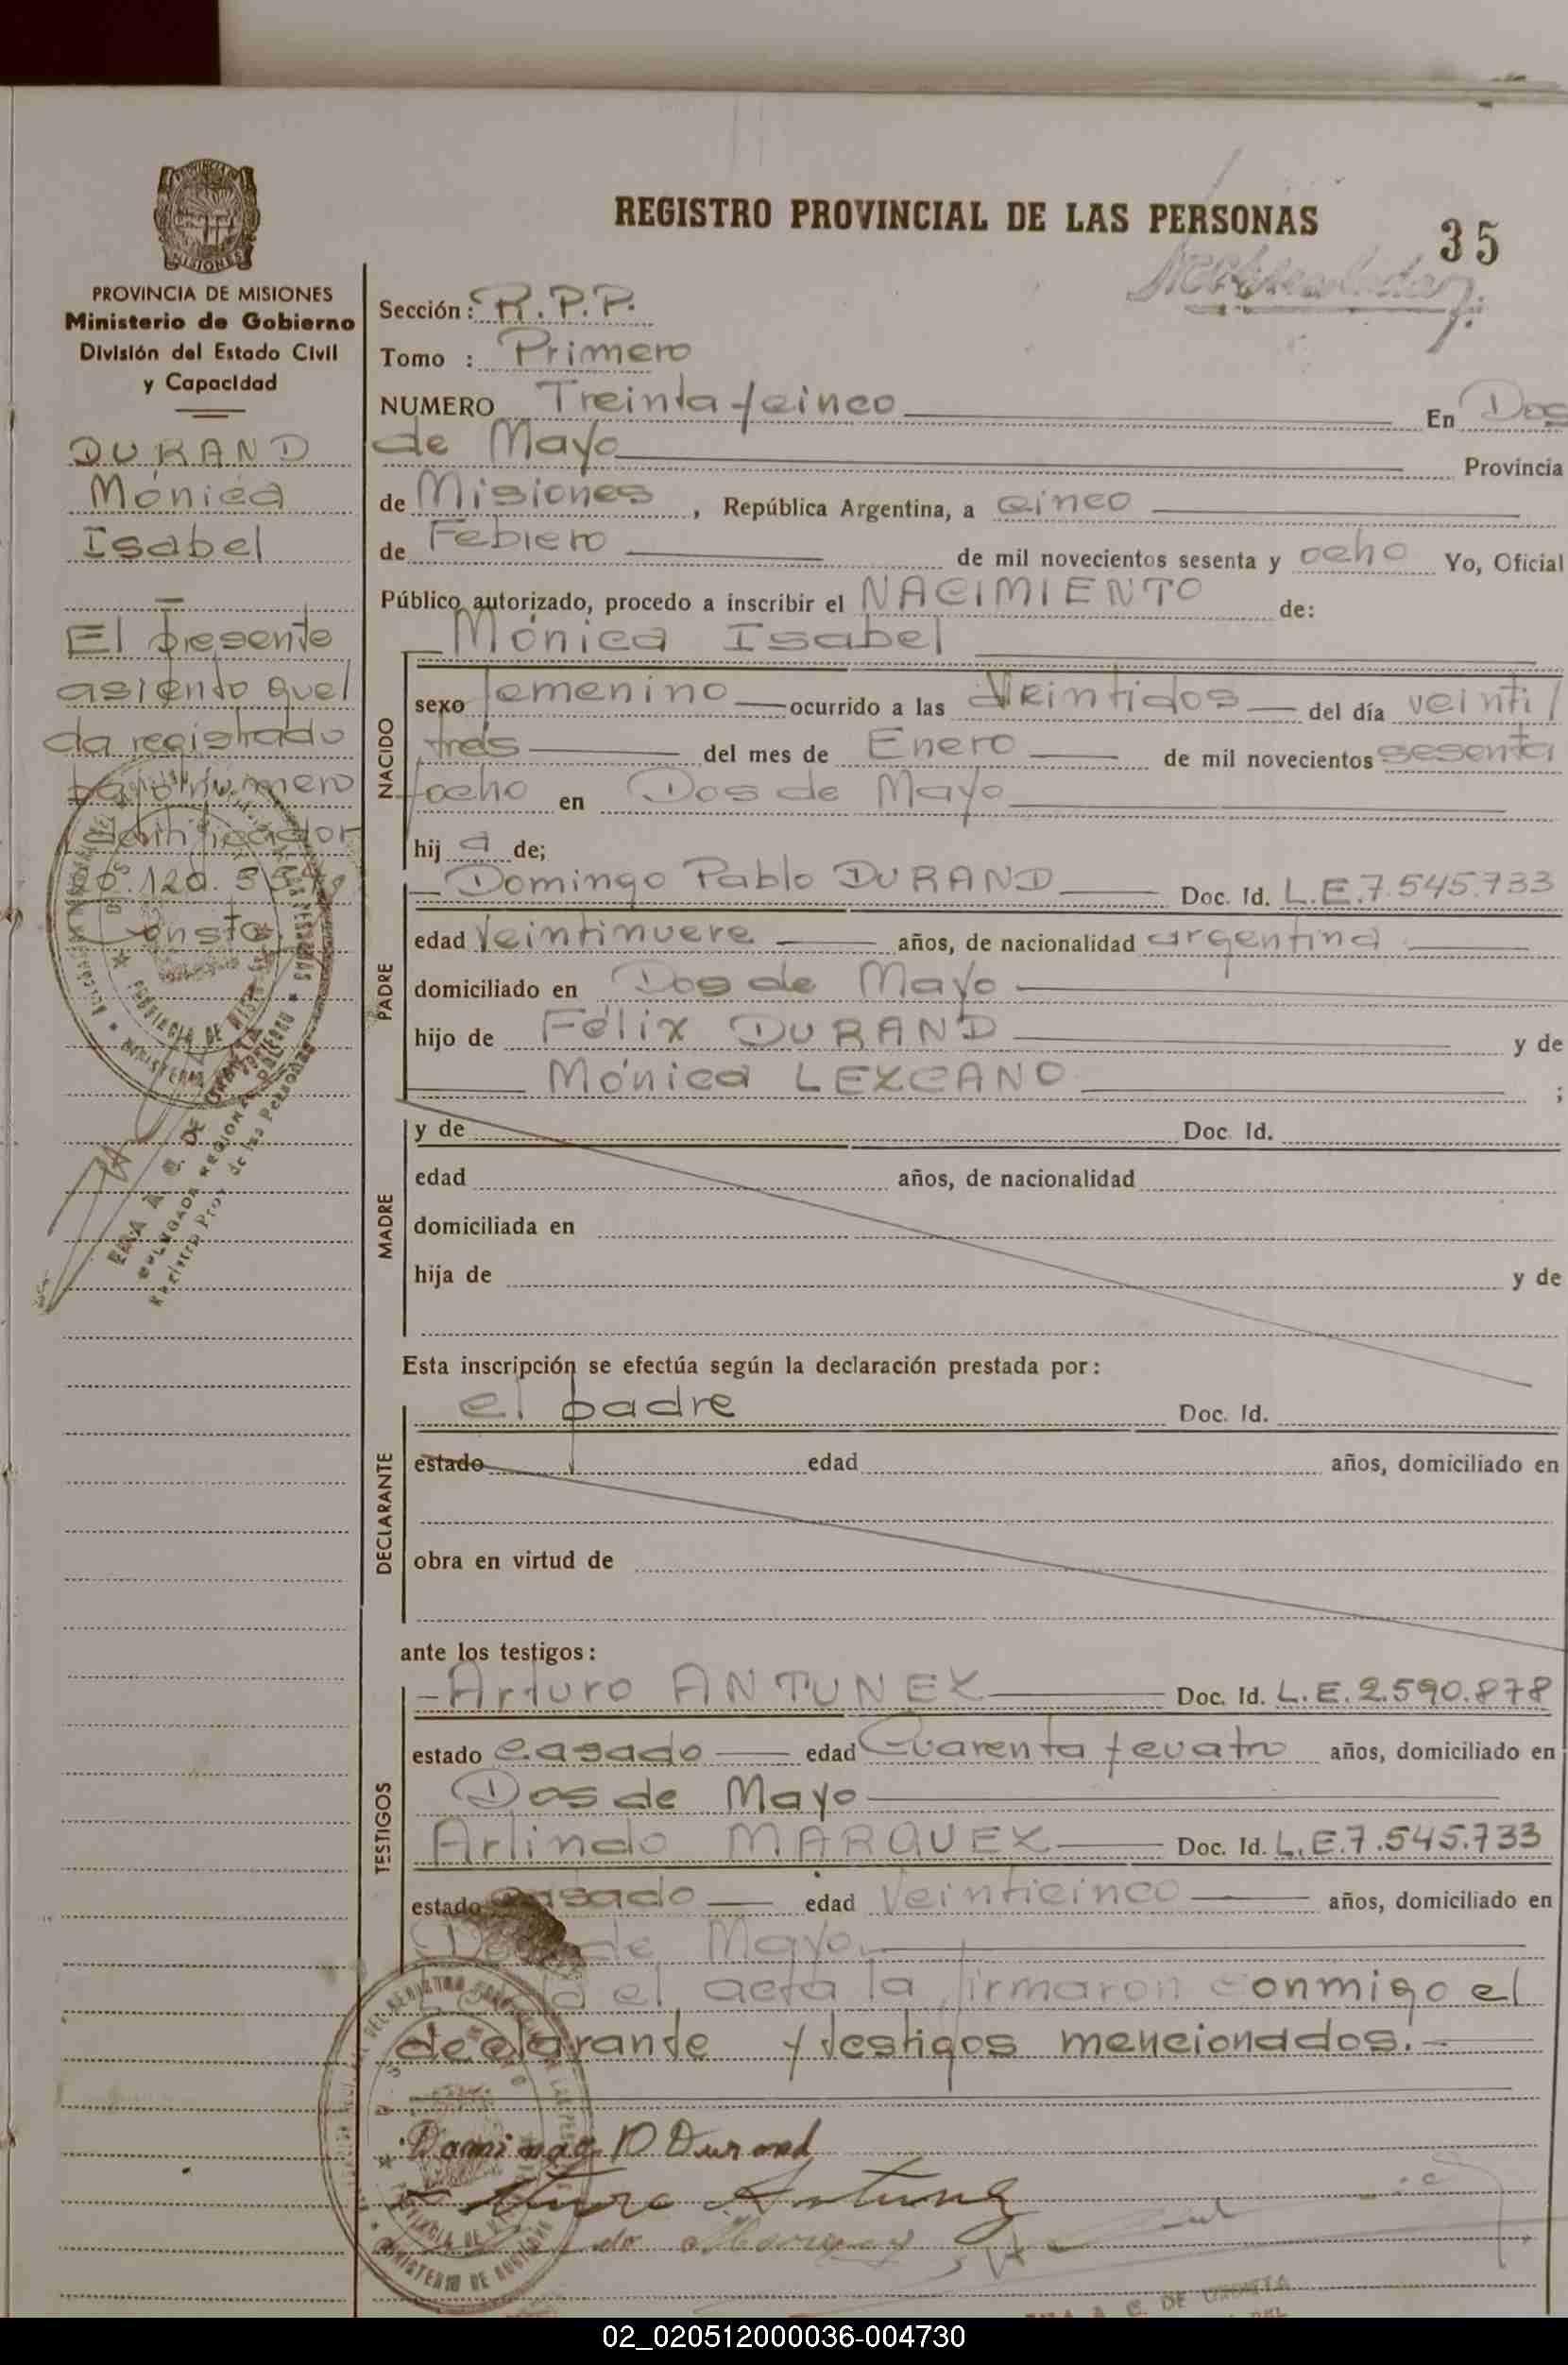 REGISTRO PROVINCIAL DE LAS PERSONAS
35
MISIONES
PROVINCIA DE MISIONES
Ministerio de Gobierno
División del Estado Civil
y Capacidad
DURAND
Mónica
Isabel
El presente
asiento quel
da registrado
bajo numero
Consta.
Sección: R.P.P.
Tomo : Primero
NUMERO Treinta y cinco En Dos
de Mayo Provincia
de Misiones, República Argentina, a cinco
de Febrero de mil novecientos sesenta y ocho Yo, Oficial
Público autorizado, procedo a inscribir el NACIMIENTO de:
Mónica Isabel
NACIDO
sexo femenino ocurrido a las veintidos del día veinti
tres del mes de Enero de mil novecientos sesenta
y ocho en Dos de Mayo
hij a de;
PADRE
Domingo Pablo DURAND Doc. Id. L.E.7.545.733
edad Veintinueve años, de nacionalidad argentina
domiciliado en Dos de Mayo
hijo de Félix DURAND y de
Mónica LEZCANO ;
MADRE
y de Doc. Id.
edad años, de nacionalidad
domiciliada en
hija de y de
Esta inscripción se efectúa según la declaración prestada por:
DECLARANTE
el padre Doc. Id.
estado edad años, domiciliado en
obra en virtud de
ante los testigos:
TESTIGOS
Arturo ANTUNEZ Doc. Id. L.E. 2.590.878
estado casado edad Cuarenta y cuatro años, domiciliado en
Dos de Mayo
Arlindo MARQUEZ Doc. Id. L.E.7.545.733
estado casado edad Veinticinco años, domiciliado en
Dos de Mayo
el acta la firmaron conmigo el
declarante y testigos mencionados.-
Domingo P Durand
Arturo Antunez
02_020512000036-004730